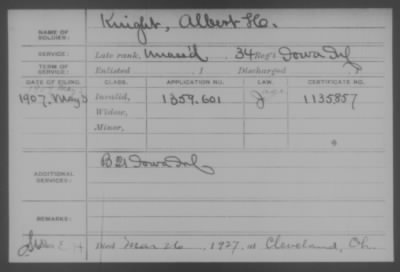 NAME OF SOLDIER: Knight, Albert H.
SERVICE: Late rank, 34 Reg't Iowa Inf
TERM OF SERVICE: Enlisted , 1 Discharged , 1
DATE OF FILING. CLASS. APPLICATION NO. LAW. CERTIFICATE NO.
1907, May 3 Invalid, 1359.601 1135857
Widow,
Minor,
ADDITIONAL SERVICES: B 21 Iowa Inf
REMARKS:
Died Mar 26, 1927, at Cleveland, Oh.